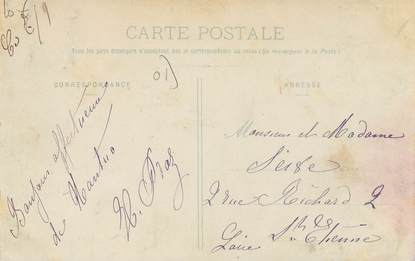 CARTE POSTALE
Tous les pays étrangers n'acceptent pas la correspondance au recto (Se renseigner à la Poste)
CORRESPONDANCE
ADRESSE
Bonjour affectueux
de Nantua
Monsieur et Madame
2 rue Richard 2
St Etienne
Loire